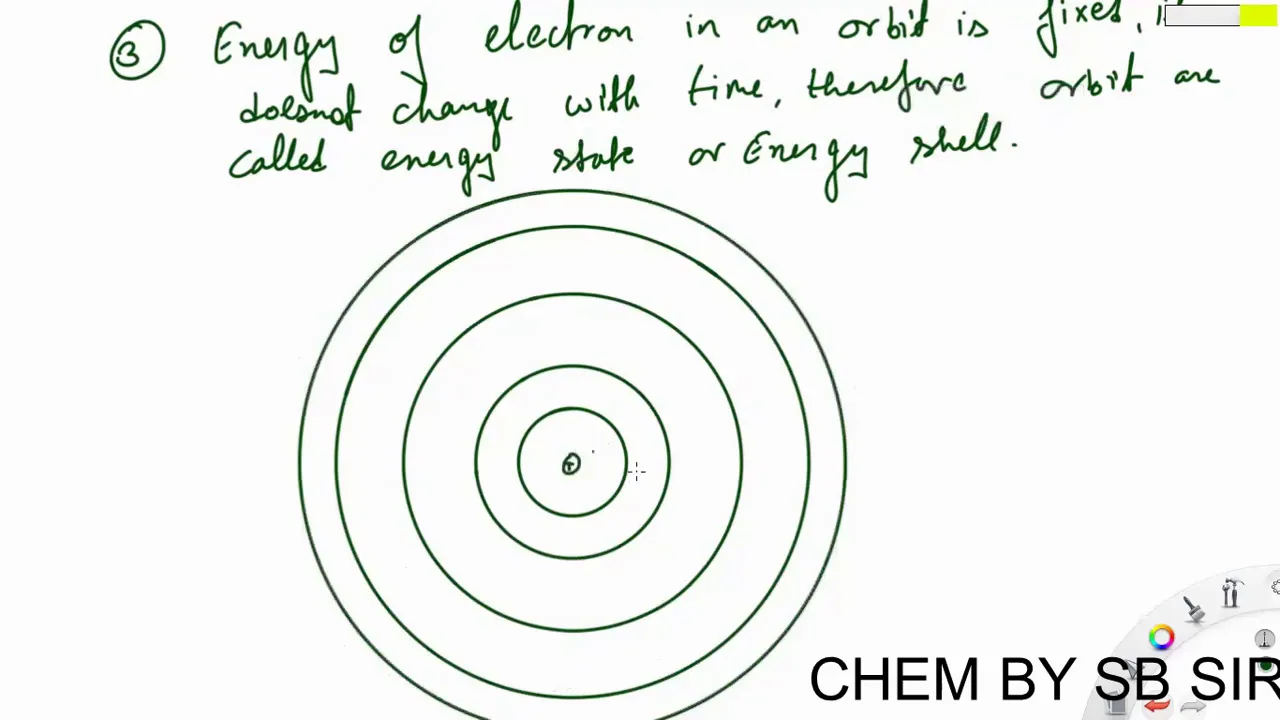 ③ Energy of electron in an orbit is fixed, it
doesnot change with time, therefore orbit are
called energy state or Energy shell.
+
CHEM BY SB SIR